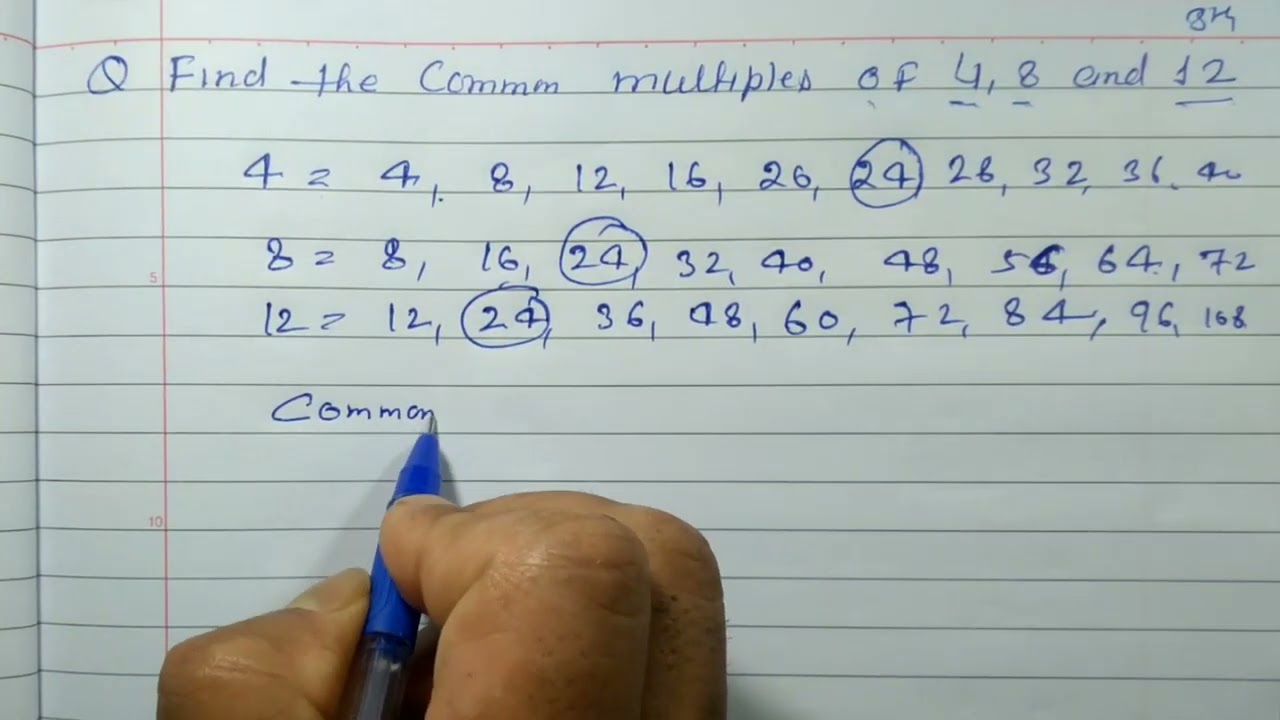 Q Find the Common multiples of 4, 8 and 12
4 = 4, 8, 12, 16, 20, 24 28, 32, 36, 40
8 = 8, 16, 24, 32, 40, 48, 56, 64, 72
5
12 = 12, 24, 36, 48, 60, 72, 84, 96, 108
Common
10